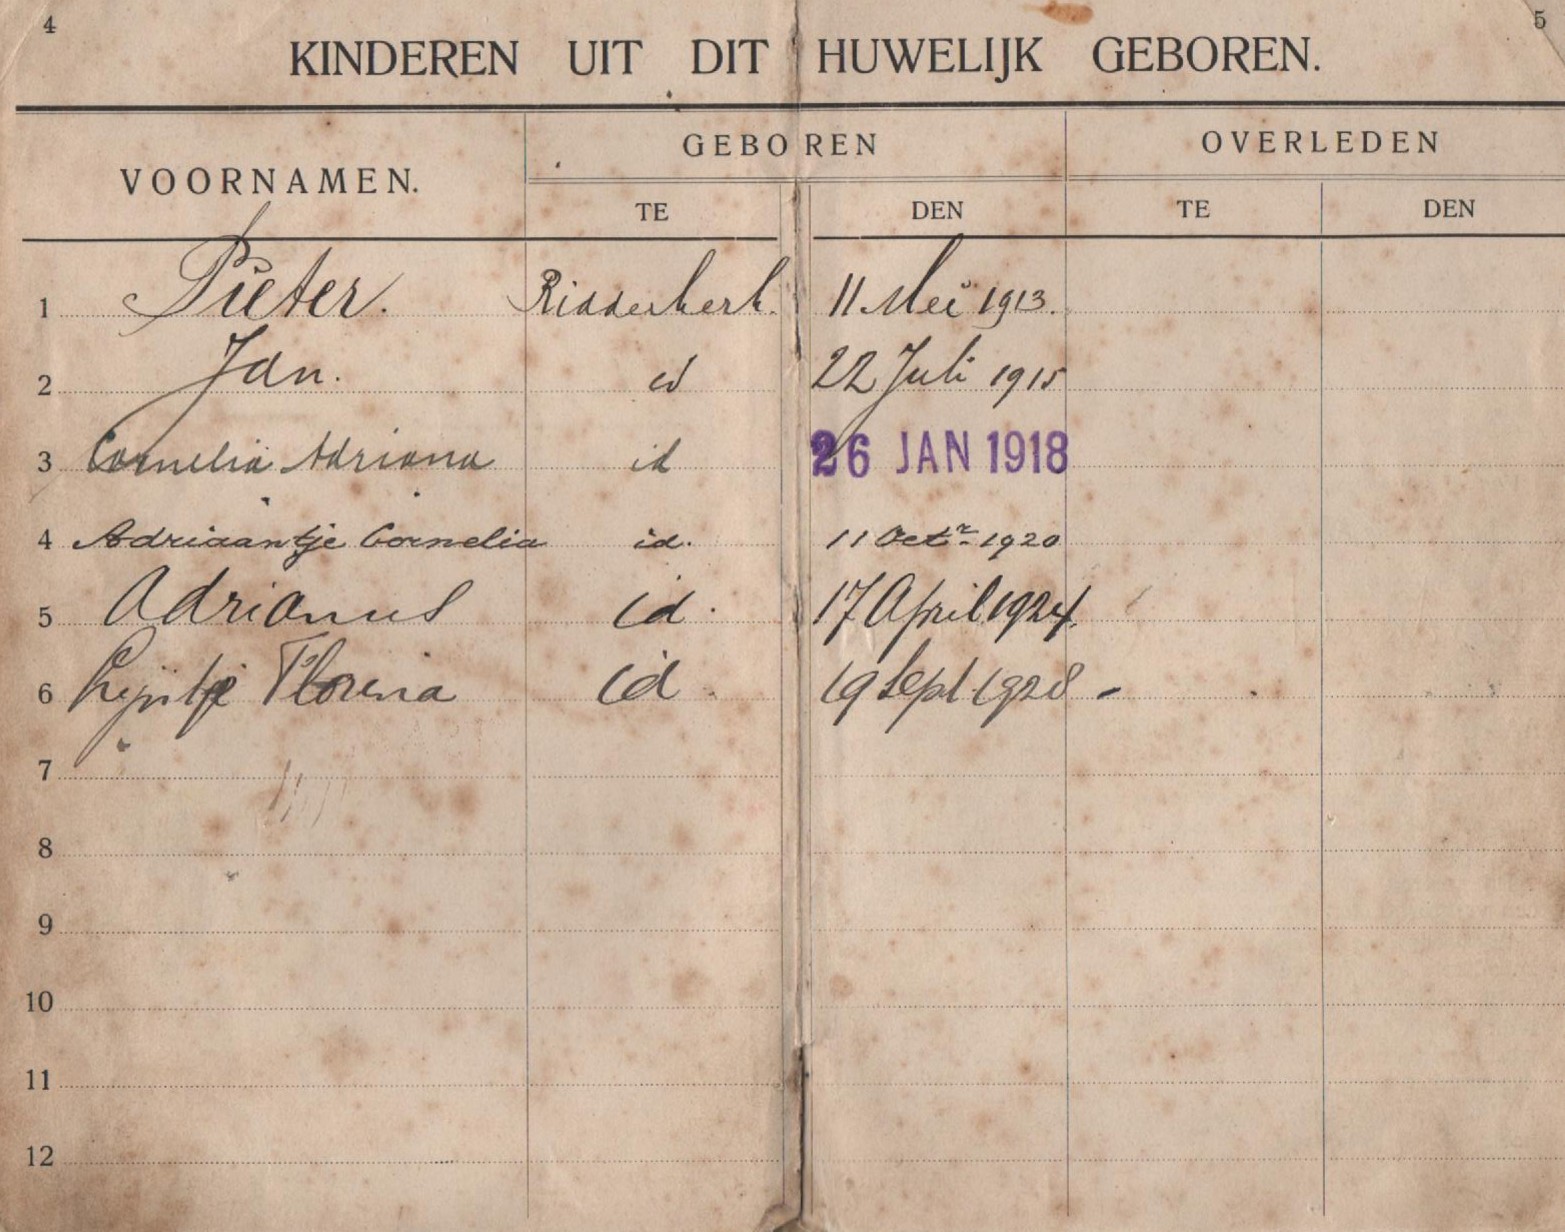 4 5
KINDEREN UIT DIT HUWELIJK GEBOREN.
VOORNAMEN. GEBOREN OVERLEDEN
TE DEN TE DEN
1 Pieter. Ridderkerk. 11 Mei 1913.
2 Jan. id 22 Juli 1915
3 Cornelia Adriana id 26 JAN 1918
4 Adriaantje Cornelia id. 11 Octr 1920
5 Adrianus id. 17 April 1924.
6 Lijntje Florina id. 19 Sept 1928 -
7
8
9
10
11
12